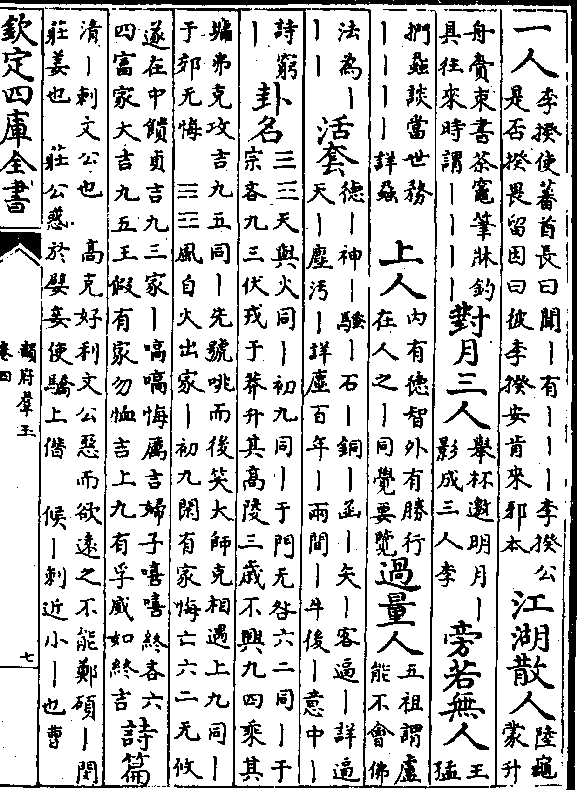 一人 李揆使蕃酋長曰聞｜有｜｜｜李揆公
是否揆畏留因曰彼李揆安肯來邪本 江湖散人 陸龜
蒙升
舟賫束書茶竈筆牀釣
具往來時謂｜｜｜｜ 對月三人 舉杯邀明月｜
影成三人李 旁若無人 王
猛
捫蝨談當世務
｜｜｜｜詳蝨 上人 內有德智外有勝行
在人之｜同覺要覽 過量人 五祖謂盧
能不會佛
法為｜
｜｜ 活套 德｜神｜騷｜石｜銅｜函｜矢｜客逼｜詳逼
天｜塵污｜詳塵百年｜兩間｜牛後｜意中｜
詩窮
｜ 卦名 ☰☲天與火同｜初九同｜于門无咎六二同｜于
宗吝九三伏戎于莽升其高陵三歲不興九四乘其
墉弗克攻吉九五同｜先號咷而後笑大師克相遇上九同｜
于郊无悔 ☴☲風自火出家｜初九閑有家悔亡六二无攸
遂在中饋貞吉九三家｜嗃嗃悔厲吉婦子嘻嘻終吝六
四富家大吉九五王假有家勿恤吉上九有孚威如終吉 詩篇
清｜刺文公也 高克好利文公惡而欲遠之不能鄭碩｜閔
莊姜也 莊公惑於嬖妾使驕上僭 候｜刺近小｜也曹
欽定四庫全書
韻府羣玉
卷四
七